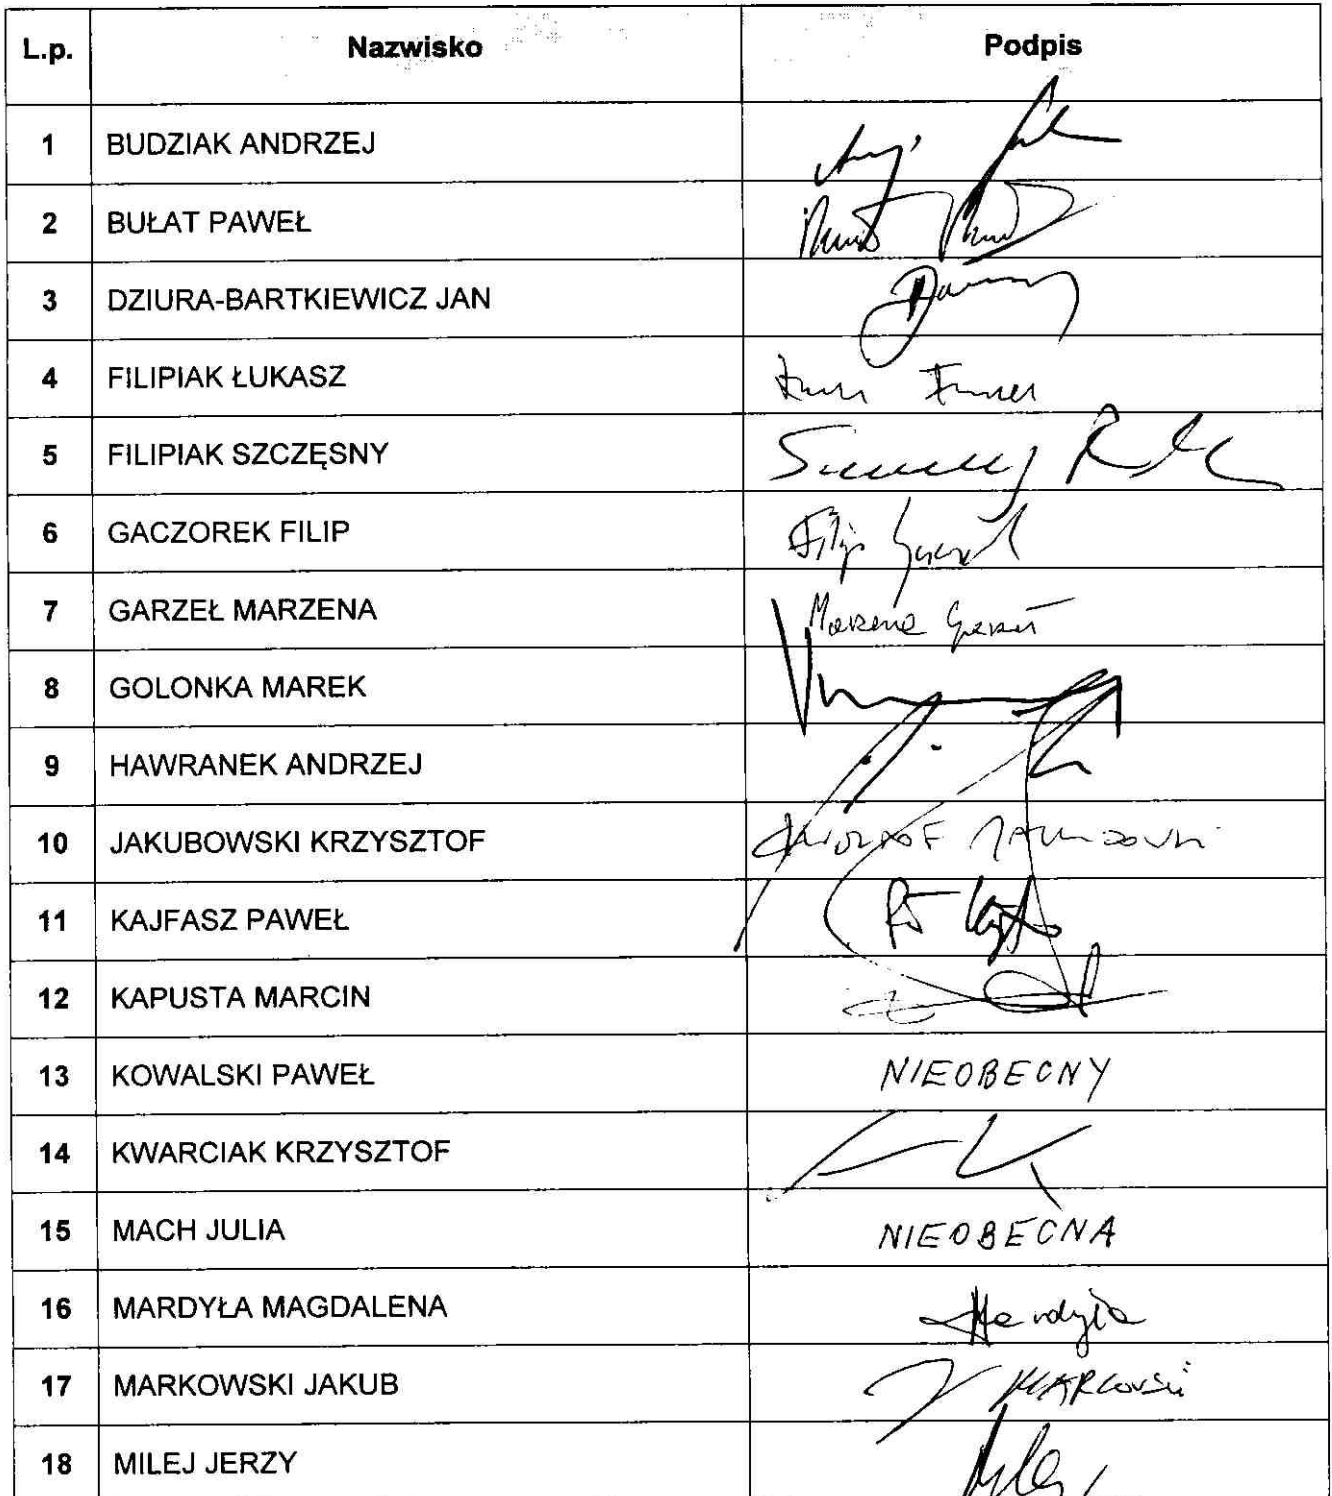 L.p. Nazwisko Podpis
1 BUDZIAK ANDRZEJ
2 BUŁAT PAWEŁ
3 DZIURA-BARTKIEWICZ JAN
4 FILIPIAK ŁUKASZ
5 FILIPIAK SZCZĘSNY
6 GACZOREK FILIP Filip
7 GARZEŁ MARZENA Marzena Garzeł
8 GOLONKA MAREK
9 HAWRANEK ANDRZEJ
10 JAKUBOWSKI KRZYSZTOF
11 KAJFASZ PAWEŁ
12 KAPUSTA MARCIN
13 KOWALSKI PAWEŁ NIEOBECNY
14 KWARCIAK KRZYSZTOF
15 MACH JULIA NIEOBECNA
16 MARDYŁA MAGDALENA Mardyła
17 MARKOWSKI JAKUB MARKOWSKI
18 MILEJ JERZY